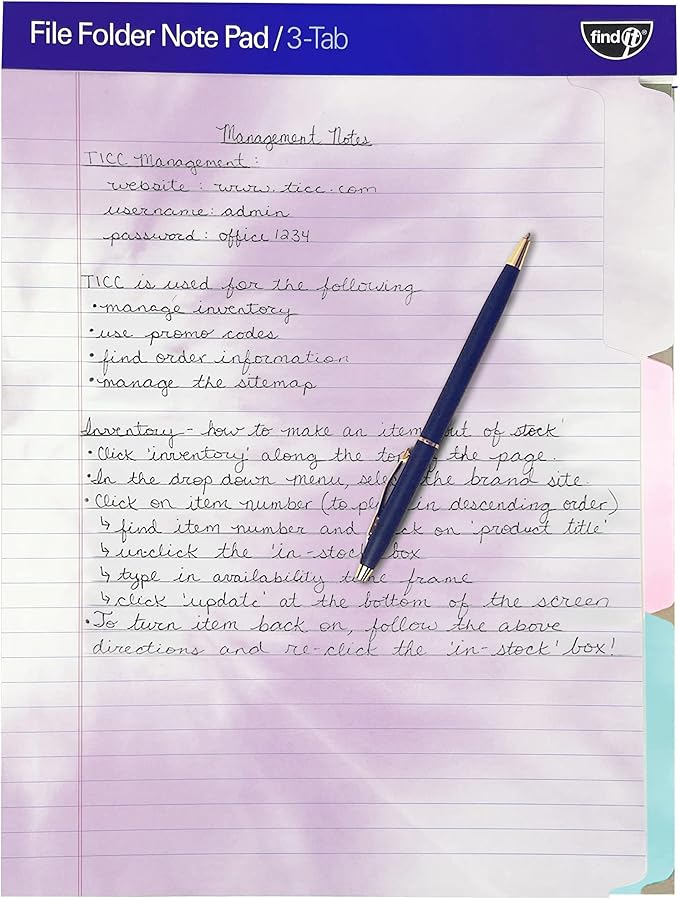 File Folder Note Pad / 3-Tab
find it®
Management Notes
TICC Management:
website: www.ticc.com
username: admin
password: office1234
TICC is used for the following
• manage inventory
• use promo codes
• find order information
• manage the sitemap
Inventory - how to make an item out of stock'
• Click 'inventory' along the top of the page.
• In the drop down menu, select the brand site.
• Click on item number (to p in descending order)
↳ find item number and click on 'product title'
↳ unclick the 'in-stock' box
↳ type in availability time frame
↳ click 'update' at the bottom of the screen
• To turn item back on, follow the above
directions and re-click the 'in-stock' box!